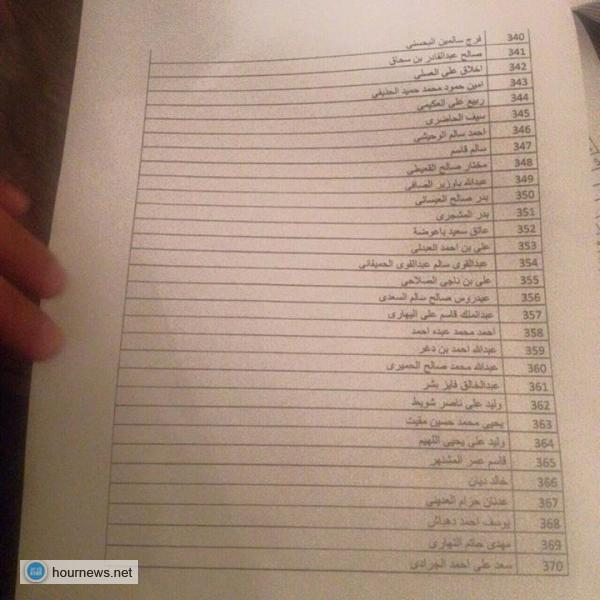 340 فرج سالمين البحسني
341 صالح عبدالقادر بن سحاق
342 اخلاق علي الصلي
343 امين حمود محمد حميد الحذيفي
344 ربيع علي العكيمي
345 سيف الحاضري
346 احمد سالم الوحيشي
347 سالم قاسم
348 مختار صالح القعيطي
349 عبدالله باوزير الصافي
350 بدر صالح العيساني
351 بدر المشجري
352 عاتق سعيد باعوضة
353 علي بن احمد العبدلي
354 عبدالقوي سالم عبدالقوي الحميقاني
355 علي بن ناجي الصلاحي
356 عيدروس صالح سالم السعدي
357 عبدالملك قاسم علي اليهاري
358 احمد محمد عبده احمد
359 عبدالله احمد بن دغر
360 عبدالله محمد صالح الحميري
361 عبدالخالق فايز بشر
362 وليد علي ناصر شويط
363 يحيى محمد حسين مقيت
364 وليد علي يحيى اللهيم
365 قاسم عسر المشتهر
366 خالد ديان
367 عدنان حزام العديني
368 يوسف احمد دهباش
369 مهدي حاتم النهاري
370 سعد علي احمد الجرادي
hournews.net